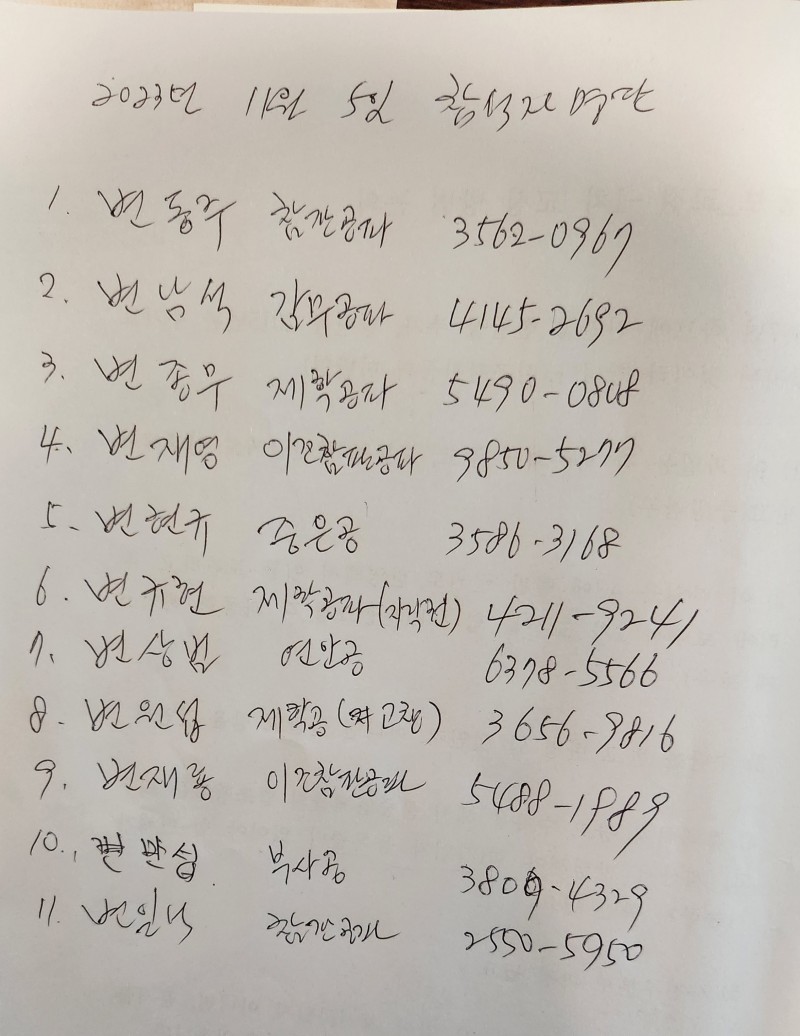 2023년 11월 5일 참석자 명단
1. 변동주 참판공파 3562-0967
2. 변남석 감무공파 4145-2692
3. 변종무 제학공파 5490-0808
4. 변재영 이조참판공파 9850-5277
5. 변현규 중은공 3586-3168
6. 변규현 제학공파 4211-9241
7. 변상범 연안공 6378-5566
8. 변원섭 제학공 (고창) 3656-9816
9. 변재룡 이조참판공파 5488-1989
10. 변만섭 부사공 -4329
11. 참판공파 2550-5950